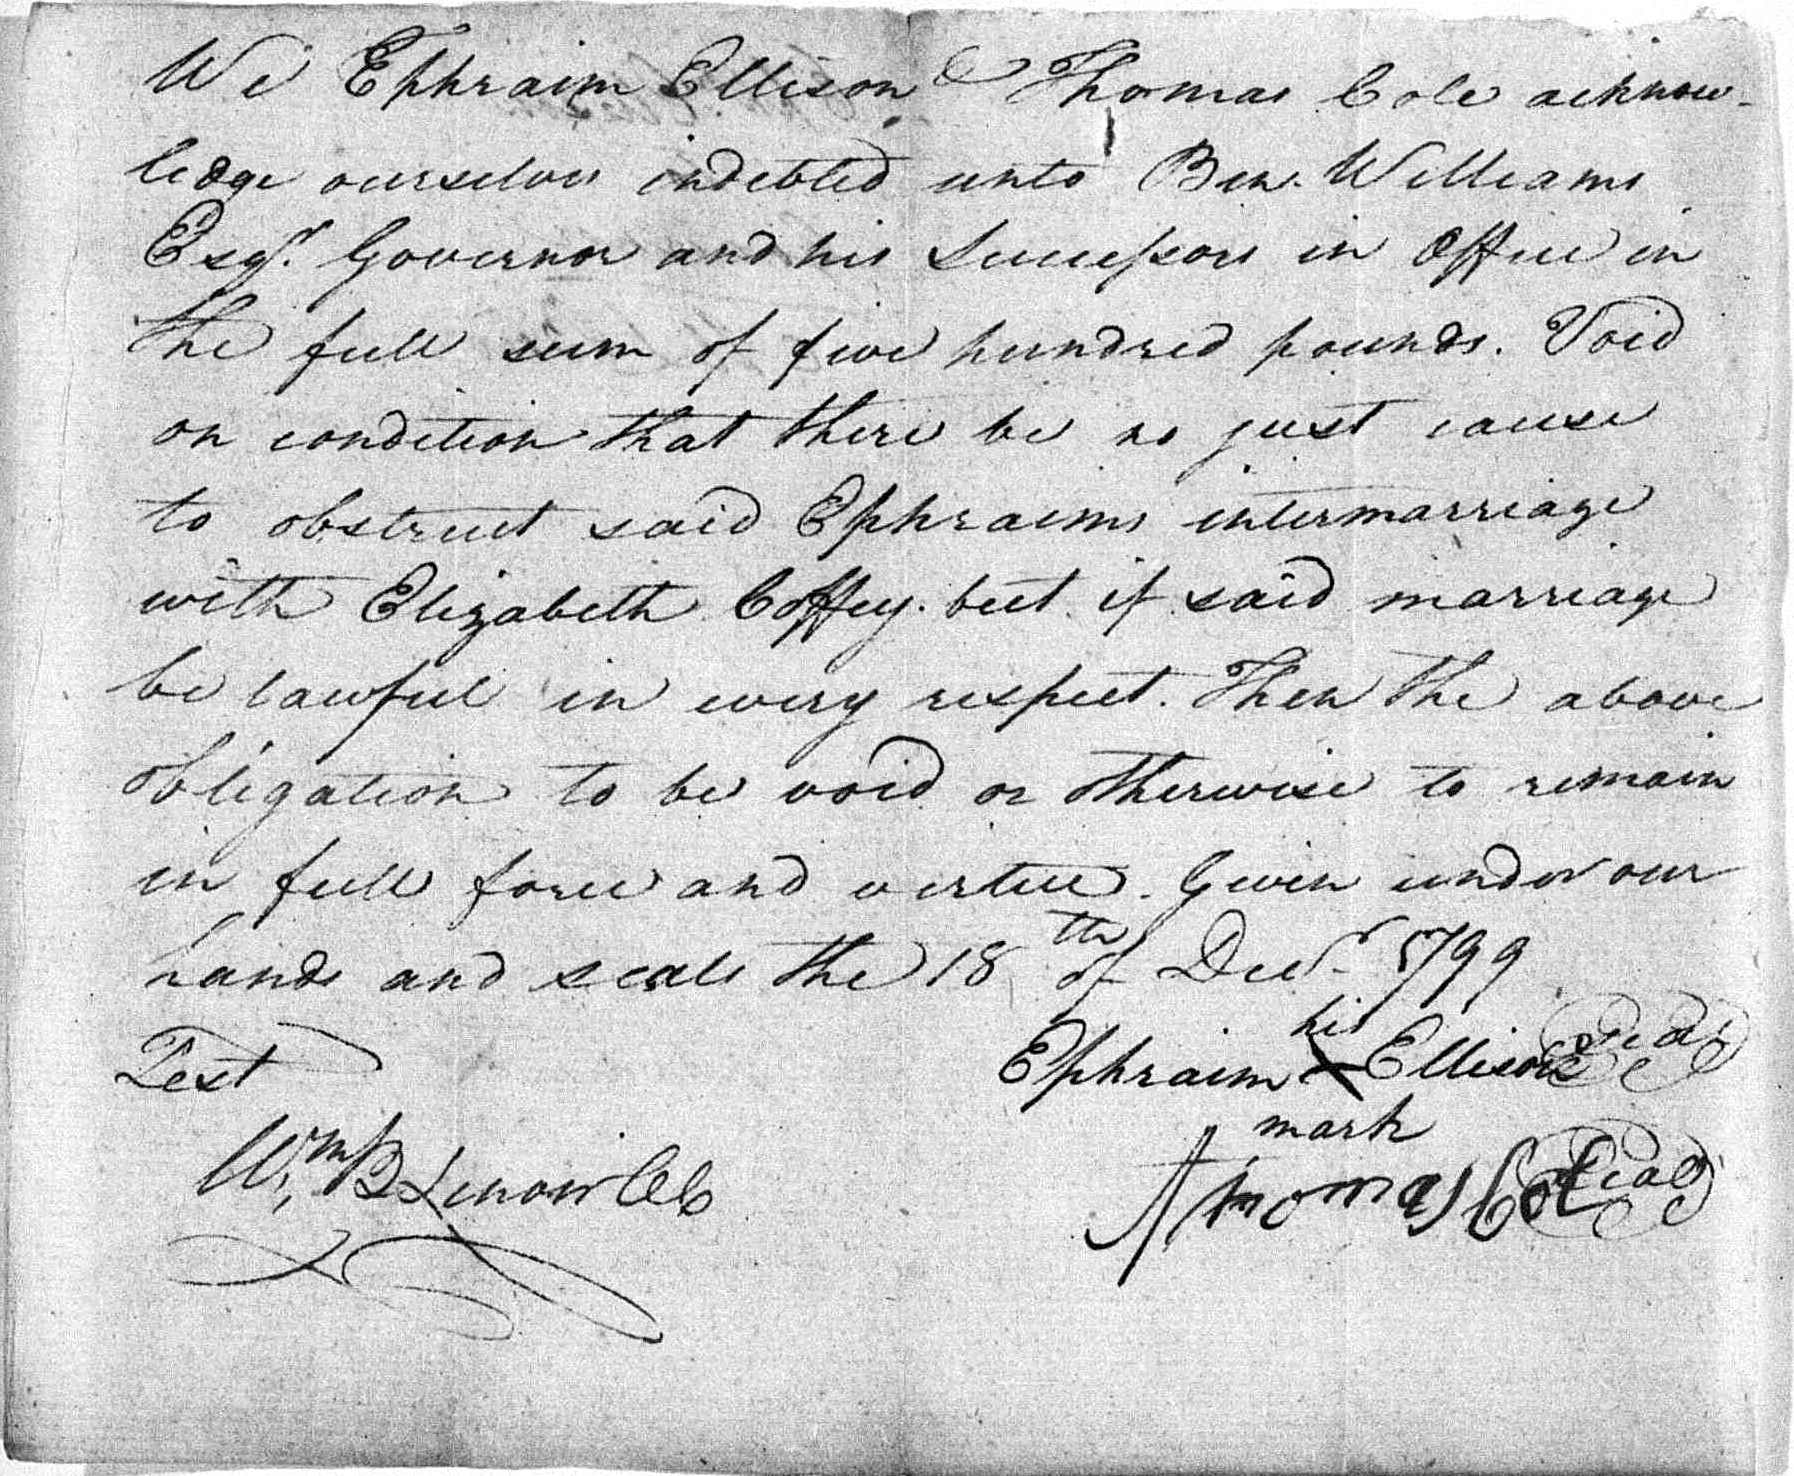 We Ephraim Ellison & Thomas Cole acknow-
ledge ourselves indebted unto Ben. Williams
Esqr. Governor and his Successors in Office in
the full sum of five hundred pounds. Void
on condition that there be no just cause
to obstruct said Ephraims intermarriage
with Elizabeth Coffey. but if said marriage
be lawful in every respect. Then the above
obligation to be void or otherwise to remain
in full force and virtue. Given under our
hands and seals the 18th of Decr. 1799
Test
his
Ephraim X Ellison Seal
mark
Wm. B Lenoir
Thomas Cole Seal